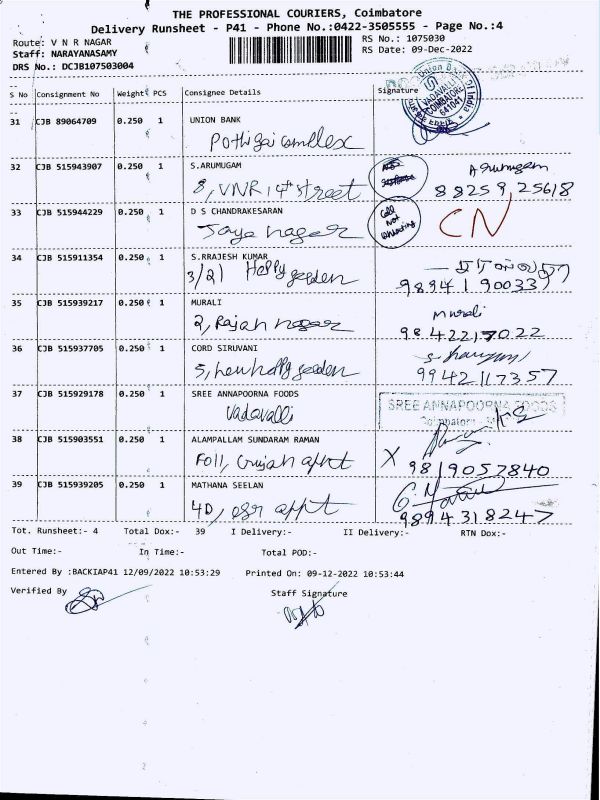 THE PROFESSIONAL COURIERS, Coimbatore
Delivery Runsheet - P41 - Phone No.:0422-3505555 - Page No.:4
Route: V N R NAGAR RS No.: 1075030
Staff: NARAYANASAMY RS Date: 09-Dec-2022
DRS No.: DCJB107503004
S No Consignment No Weight PCS Consignee Details Signature
Union Bank of India
VADAVALLI
COIMBATORE
641041
31 CJB 89064709 0.250 1 UNION BANK
Pothigai complex
32 CJB 515943907 0.250 1 S.ARUMUGAM
8, VNR 14th street 88259,25618
33 CJB 515944229 0.250 1 D S CHANDRAKESARAN
Jaya nagar CN
34 CJB 515911354 0.250 1 S.RRAJESH KUMAR
3/21 Happy garden 98941 90033
35 CJB 515939217 0.250 1 MURALI Murali
2, Rajan nagar 9842217022
36 CJB 515937705 0.250 1 CORD SIRUVANI
5, new happy garden 9942117357
37 CJB 515929178 0.250 1 SREE ANNAPOORNA FOODS SREE ANNAPOORNA FOODS
Vadavalli
38 CJB 515903551 0.250 1 ALAMPALLAM SUNDARAM RAMAN
F011, appt X 9819057840
39 CJB 515939205 0.250 1 MATHANA SEELAN
4D, appt 9894318247
Tot. Runsheet:- 4 Total Dox:- 39 I Delivery:- II Delivery:- RTN Dox:-
Out Time:- In Time:- Total POD:-
Entered By :BACKIAP41 12/09/2022 10:53:29 Printed On: 09-12-2022 10:53:44
Verified By Staff Signature